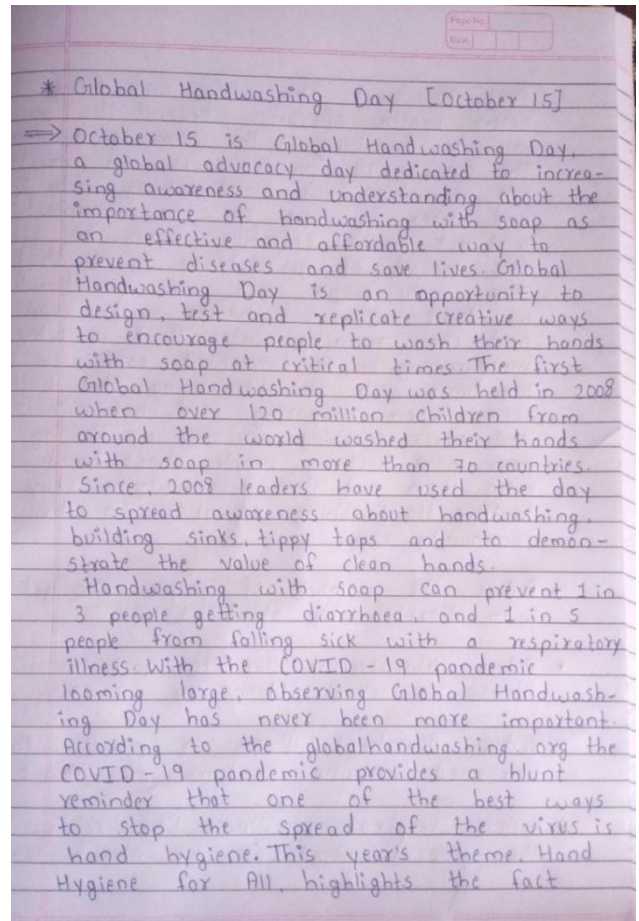 Page No.
Date
* Global Handwashing Day [October 15]
⇒ October 15 is Global Handwashing Day,
a global advocacy day dedicated to increa-
sing awareness and understanding about the
importance of handwashing with soap as
an effective and affordable way to
prevent diseases and save lives. Global
Handwashing Day is an opportunity to
design, test and replicate creative ways
to encourage people to wash their hands
with soap at critical times. The first
Global Handwashing Day was held in 2008
when over 120 million children from
around the world washed their hands
with soap in more than 70 countries.
Since, 2008 leaders have used the day
to spread awareness about handwashing,
building sinks, tippy taps and to demon-
strate the value of clean hands.
Handwashing with soap can prevent 1 in
3 people getting diarrhoea, and 1 in 5
people from falling sick with a respiratory
illness. With the COVID-19 pandemic
looming large, observing Global Handwash-
ing Day has never been more important.
According to the globalhandwashing.org the
COVID-19 pandemic provides a blunt
reminder that one of the best ways
to stop the spread of the virus is
hand hygiene. This year's theme, Hand
Hygiene for All, highlights the fact